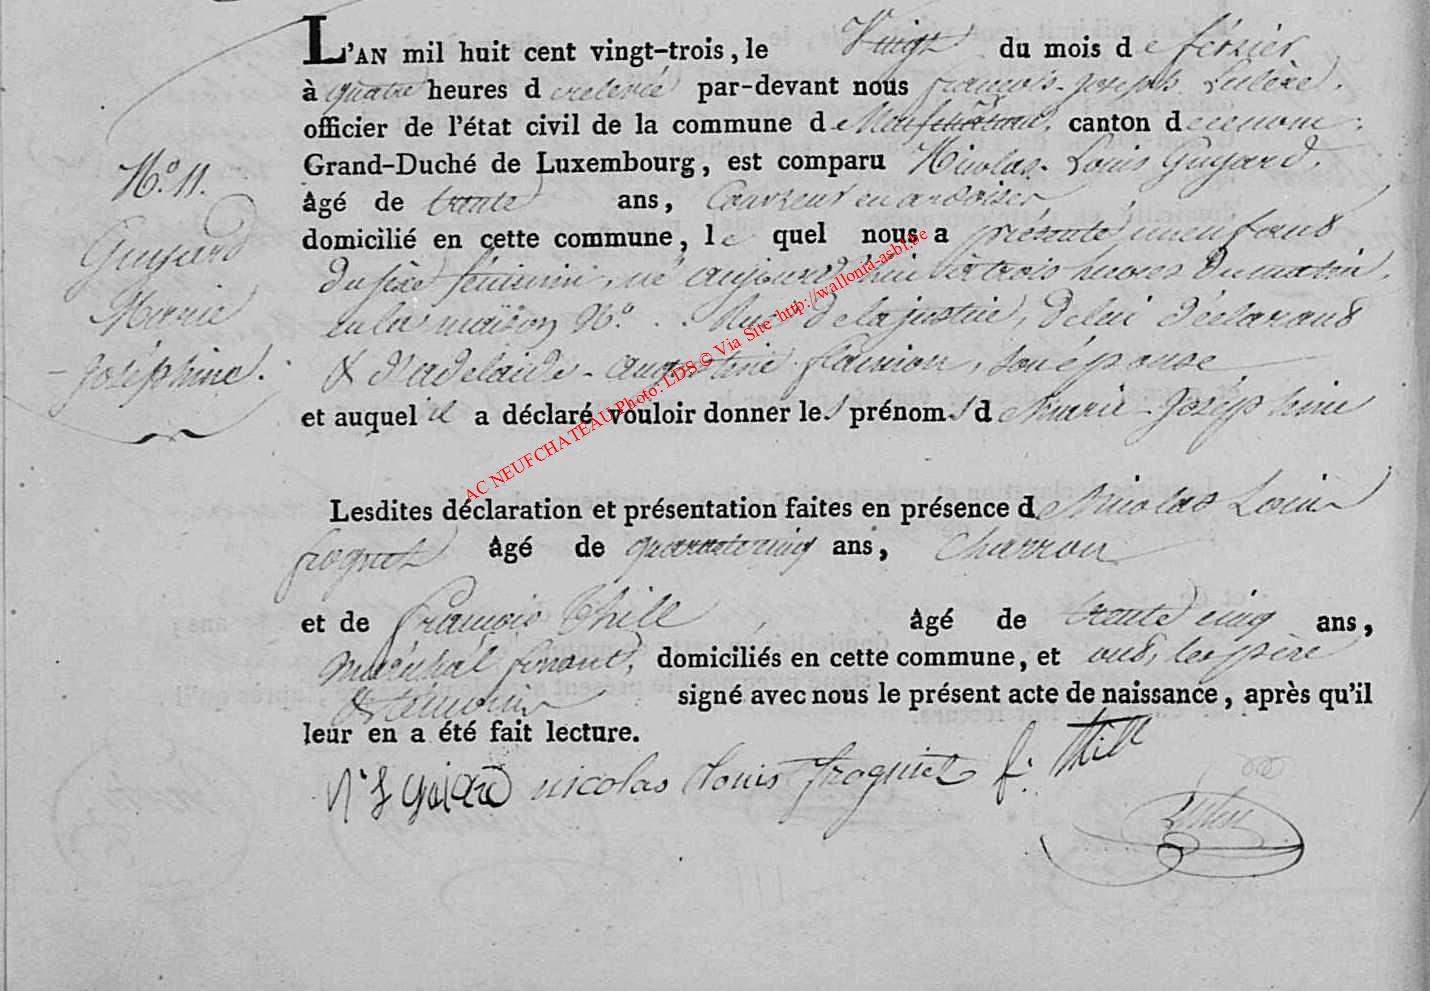 L'AN mil huit cent vingt-trois, le Vingt du mois de février
à quatre heures de relevée par-devant nous françois-joseph
officier de l'état civil de la commune de Neufchâteau, canton de ce nom,
Grand-Duché de Luxembourg, est comparu Nicolas-Louis Guyard,
N.° 11.
âgé de trente ans, Couvreur en ardoises
Guyard
domicilié en cette commune, le quel nous a présenté un enfant
du sexe féminin, né aujourd'hui à trois heures du matin,
Marie
en la maison N.° . . Rue de la justice, de lui déclarant
- joséphine.
& d'adelaïde-augustine flamion, son épouse
et auquel il a déclaré vouloir donner les prénoms de marie-joséphine
AC NEUFCHATEAU Photo: LDS © Via Site http://wallonia-asbl.be
Lesdites déclaration et présentation faites en présence de Nicolas Louis
frognet âgé de quarante cinq ans, charron
et de françois thill âgé de trente cinq ans,
maréchal ferrant, domiciliés en cette commune, et ont, les père
& témoins signé avec nous le présent acte de naissance, après qu'il
leur en a été fait lecture.
nicolas louis frognet f. thill